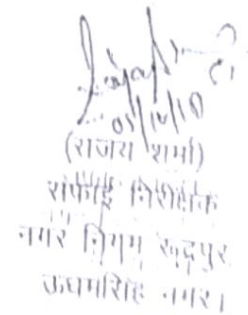 05/10/18
(राजय शर्मा)
सफाई निरीक्षक
नगर निगम रूद्रपुर
ऊधमसिंह नगर।